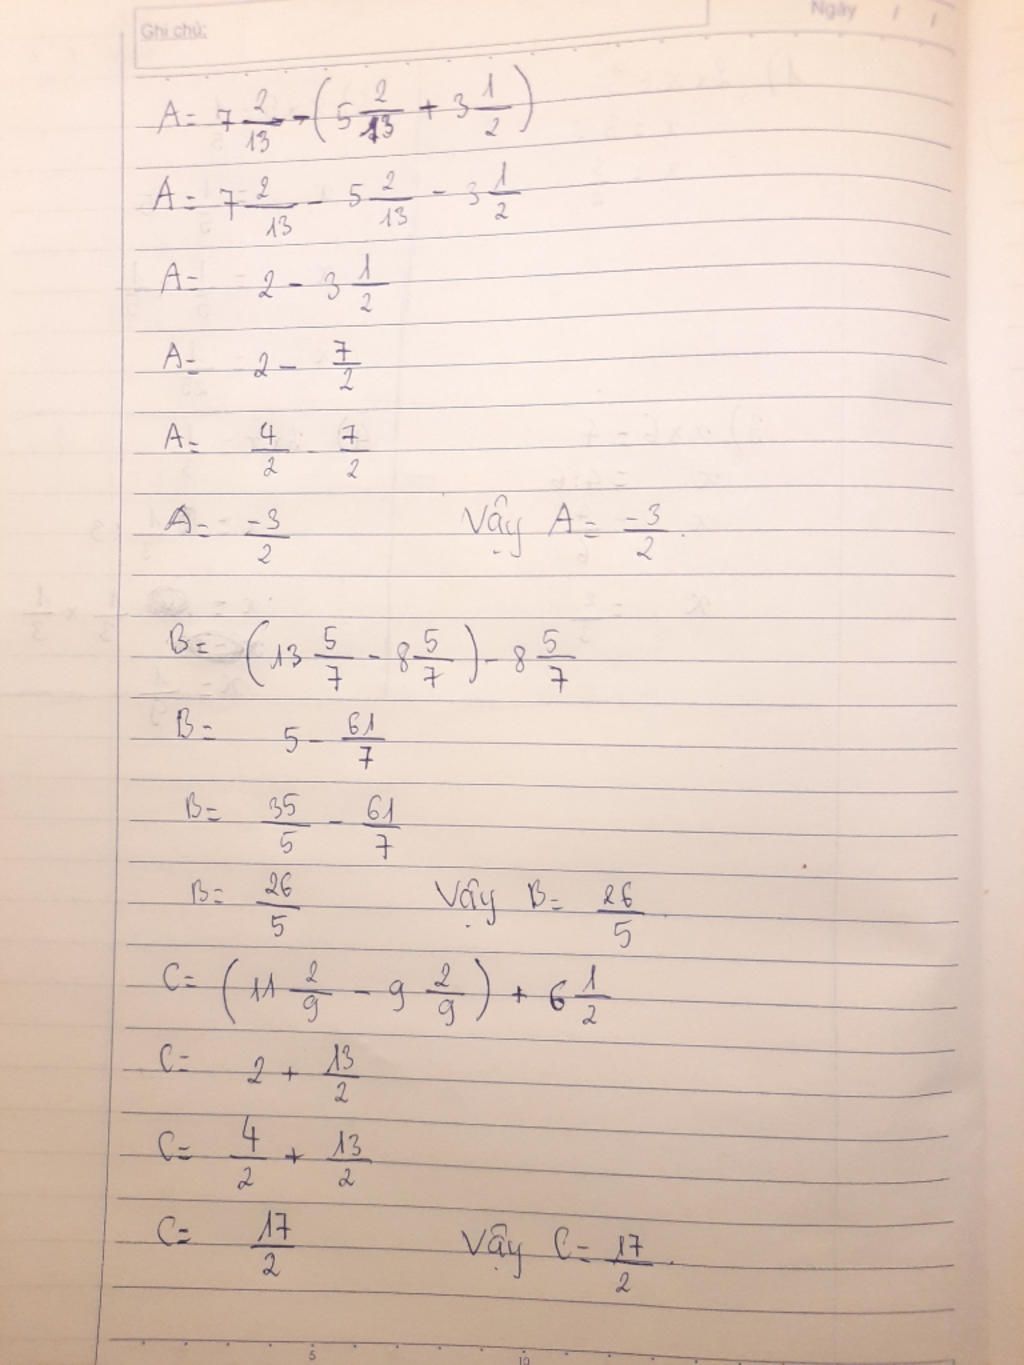 Ghi chú:
Ngày / /
A = 7 2/13 - (5 2/13 + 3 1/2)
A = 7 2/13 - 5 2/13 - 3 1/2
A = 2 - 3 1/2
A = 2 - 7/2
A = 4/2 - 7/2
A = -3/2 Vậy A = -3/2.
B = (13 5/7 - 8 5/7) - 8 5/7
B = 5 - 61/7
B = 35/5 - 61/7
B = 26/5 Vậy B = 26/5.
C = (11 2/9 - 9 2/9) + 6 1/2
C = 2 + 13/2
C = 4/2 + 13/2
C = 17/2 Vậy C = 17/2.
5 10